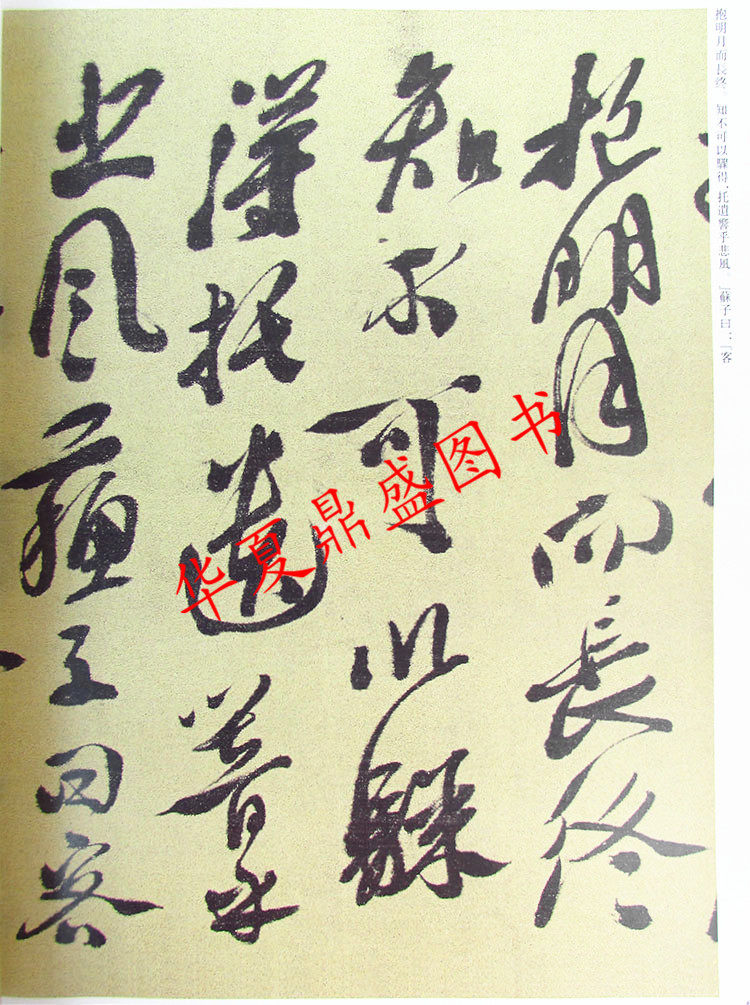 抱明月而長終。知不可以驟得,托遺響乎悲風。」蘇子曰:「客
抱明月而長終
知不可以驟
得托遺響乎
悲風蘇子曰客
华夏鼎盛图书